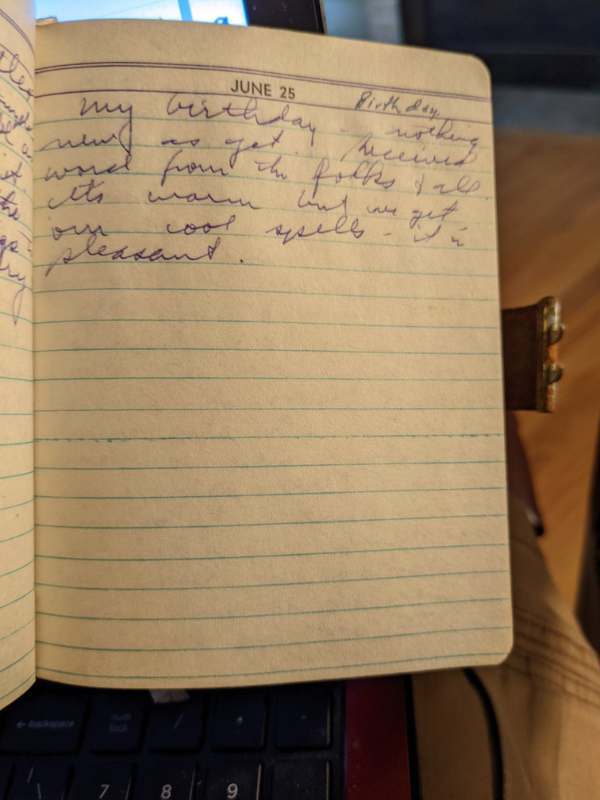 JUNE 25
Birthday
My birthday - nothing
new as yet. Received
word from the folks & all.
It's warm but we get
our cool spells - it is
pleasant.
backspace
num lock
/
7 8 9